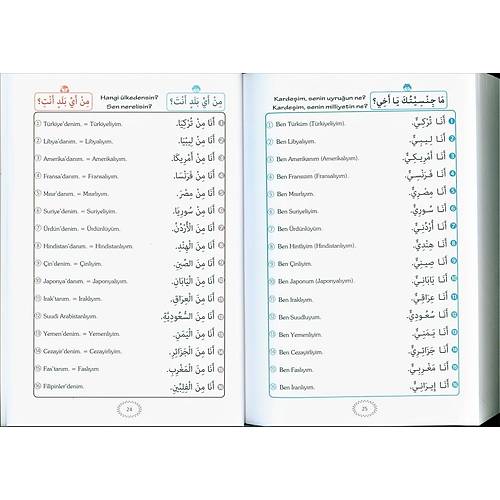 مِنْ أَيِّ بَلَدٍ أَنْتِ؟ Hangi ülkedensin? مِنْ أَيِّ بَلَدٍ أَنْتَ؟
Sen nerelisin?
1 Türkiye'denim. = Türkiyeliyim. أَنَا مِنْ تُرْكِيَا.
2 Libya'danım. = Libyalıyım. أَنَا مِنْ لِيبْيَا.
3 Amerika'danım. = Amerikalıyım. أَنَا مِنْ أَمْرِيكَا.
4 Fransa'danım. = Fransalıyım. أَنَا مِنْ فَرَنْسَا.
5 Mısır'danım. = Mısırlıyım. أَنَا مِنْ مِصْرَ.
6 Suriye'denim. = Suriyeliyim. أَنَا مِنْ سُورِيَا.
7 Ürdün'denim. = Ürdünlüyüm. أَنَا مِنَ الْأُرْدُنِّ.
8 Hindistan'danım. = Hindistanlıyım. أَنَا مِنَ الْهِنْدِ.
9 Çin'denim. = Çinliyim. أَنَا مِنَ الصِّينِ.
10 Japonya'danım. = Japonyalıyım. أَنَا مِنَ الْيَابَانِ.
11 Irak'tanım. = Iraklıyım. أَنَا مِنَ الْعِرَاقِ.
12 Suudi Arabistanlıyım. أَنَا مِنَ السُّعُودِيَّةِ.
13 Yemen'denim. = Yemenliyim. أَنَا مِنَ الْيَمَنِ.
14 Cezayir'denim. = Cezayirliyim. أَنَا مِنَ الْجَزَائِرِ.
15 Fas'tanım. = Faslıyım أَنَا مِنَ الْمَغْرِبِ.
16 Filipinler'denim. أَنَا مِنَ الْفِلِبِّينِ.
24
Kardeşim, senin uyruğun ne? مَا جِنْسِيَّتُكَ يَا أَخِي؟
Kardeşim, senin milliyetin ne?
1 Ben Türküm (Türkiyeliyim). أَنَا تُرْكِيٌّ.
2 Ben Libyalıyım. أَنَا لِيبِيٌّ.
3 Ben Amerikanım (Amerikalıyım). أَنَا أَمْرِيكِيٌّ.
4 Ben Fransızım (Fransalıyım). أَنَا فَرَنْسِيٌّ.
5 Ben Mısırlıyım. أَنَا مِصْرِيٌّ.
6 Ben Suriyeliyim. أَنَا سُورِيٌّ.
7 Ben Ürdünlüyüm. أَنَا أُرْدُنِيٌّ.
8 Ben Hintliyim (Hindistanlıyım). أَنَا هِنْدِيٌّ.
9 Ben Çinliyim. أَنَا صِينِيٌّ.
10 Ben Japonum (Japonyalıyım). أَنَا يَابَانِيٌّ.
11 Ben Iraklıyım. أَنَا عِرَاقِيٌّ.
12 Ben Suudluyum. أَنَا سُعُودِيٌّ.
13 Ben Yemenliyim. أَنَا يَمَنِيٌّ.
14 Ben Cezayirliyim. أَنَا جَزَائِرِيٌّ.
15 Ben Faslıyım. أَنَا مَغْرِبِيٌّ.
16 Ben İranlıyım. أَنَا إِيرَانِيٌّ.
25